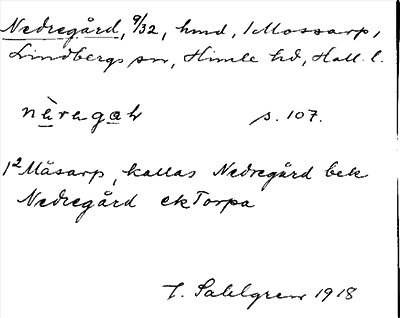 Nedregård, 9/32, hmd, 1 Mossarp,
Lindbergs sn, Himle hd, Hall. l.
nèragaḷ s. 107.
1² Måsarp, kallas Nedregård bek
Nedregård ek Torpa
J. Sahlgren 1918